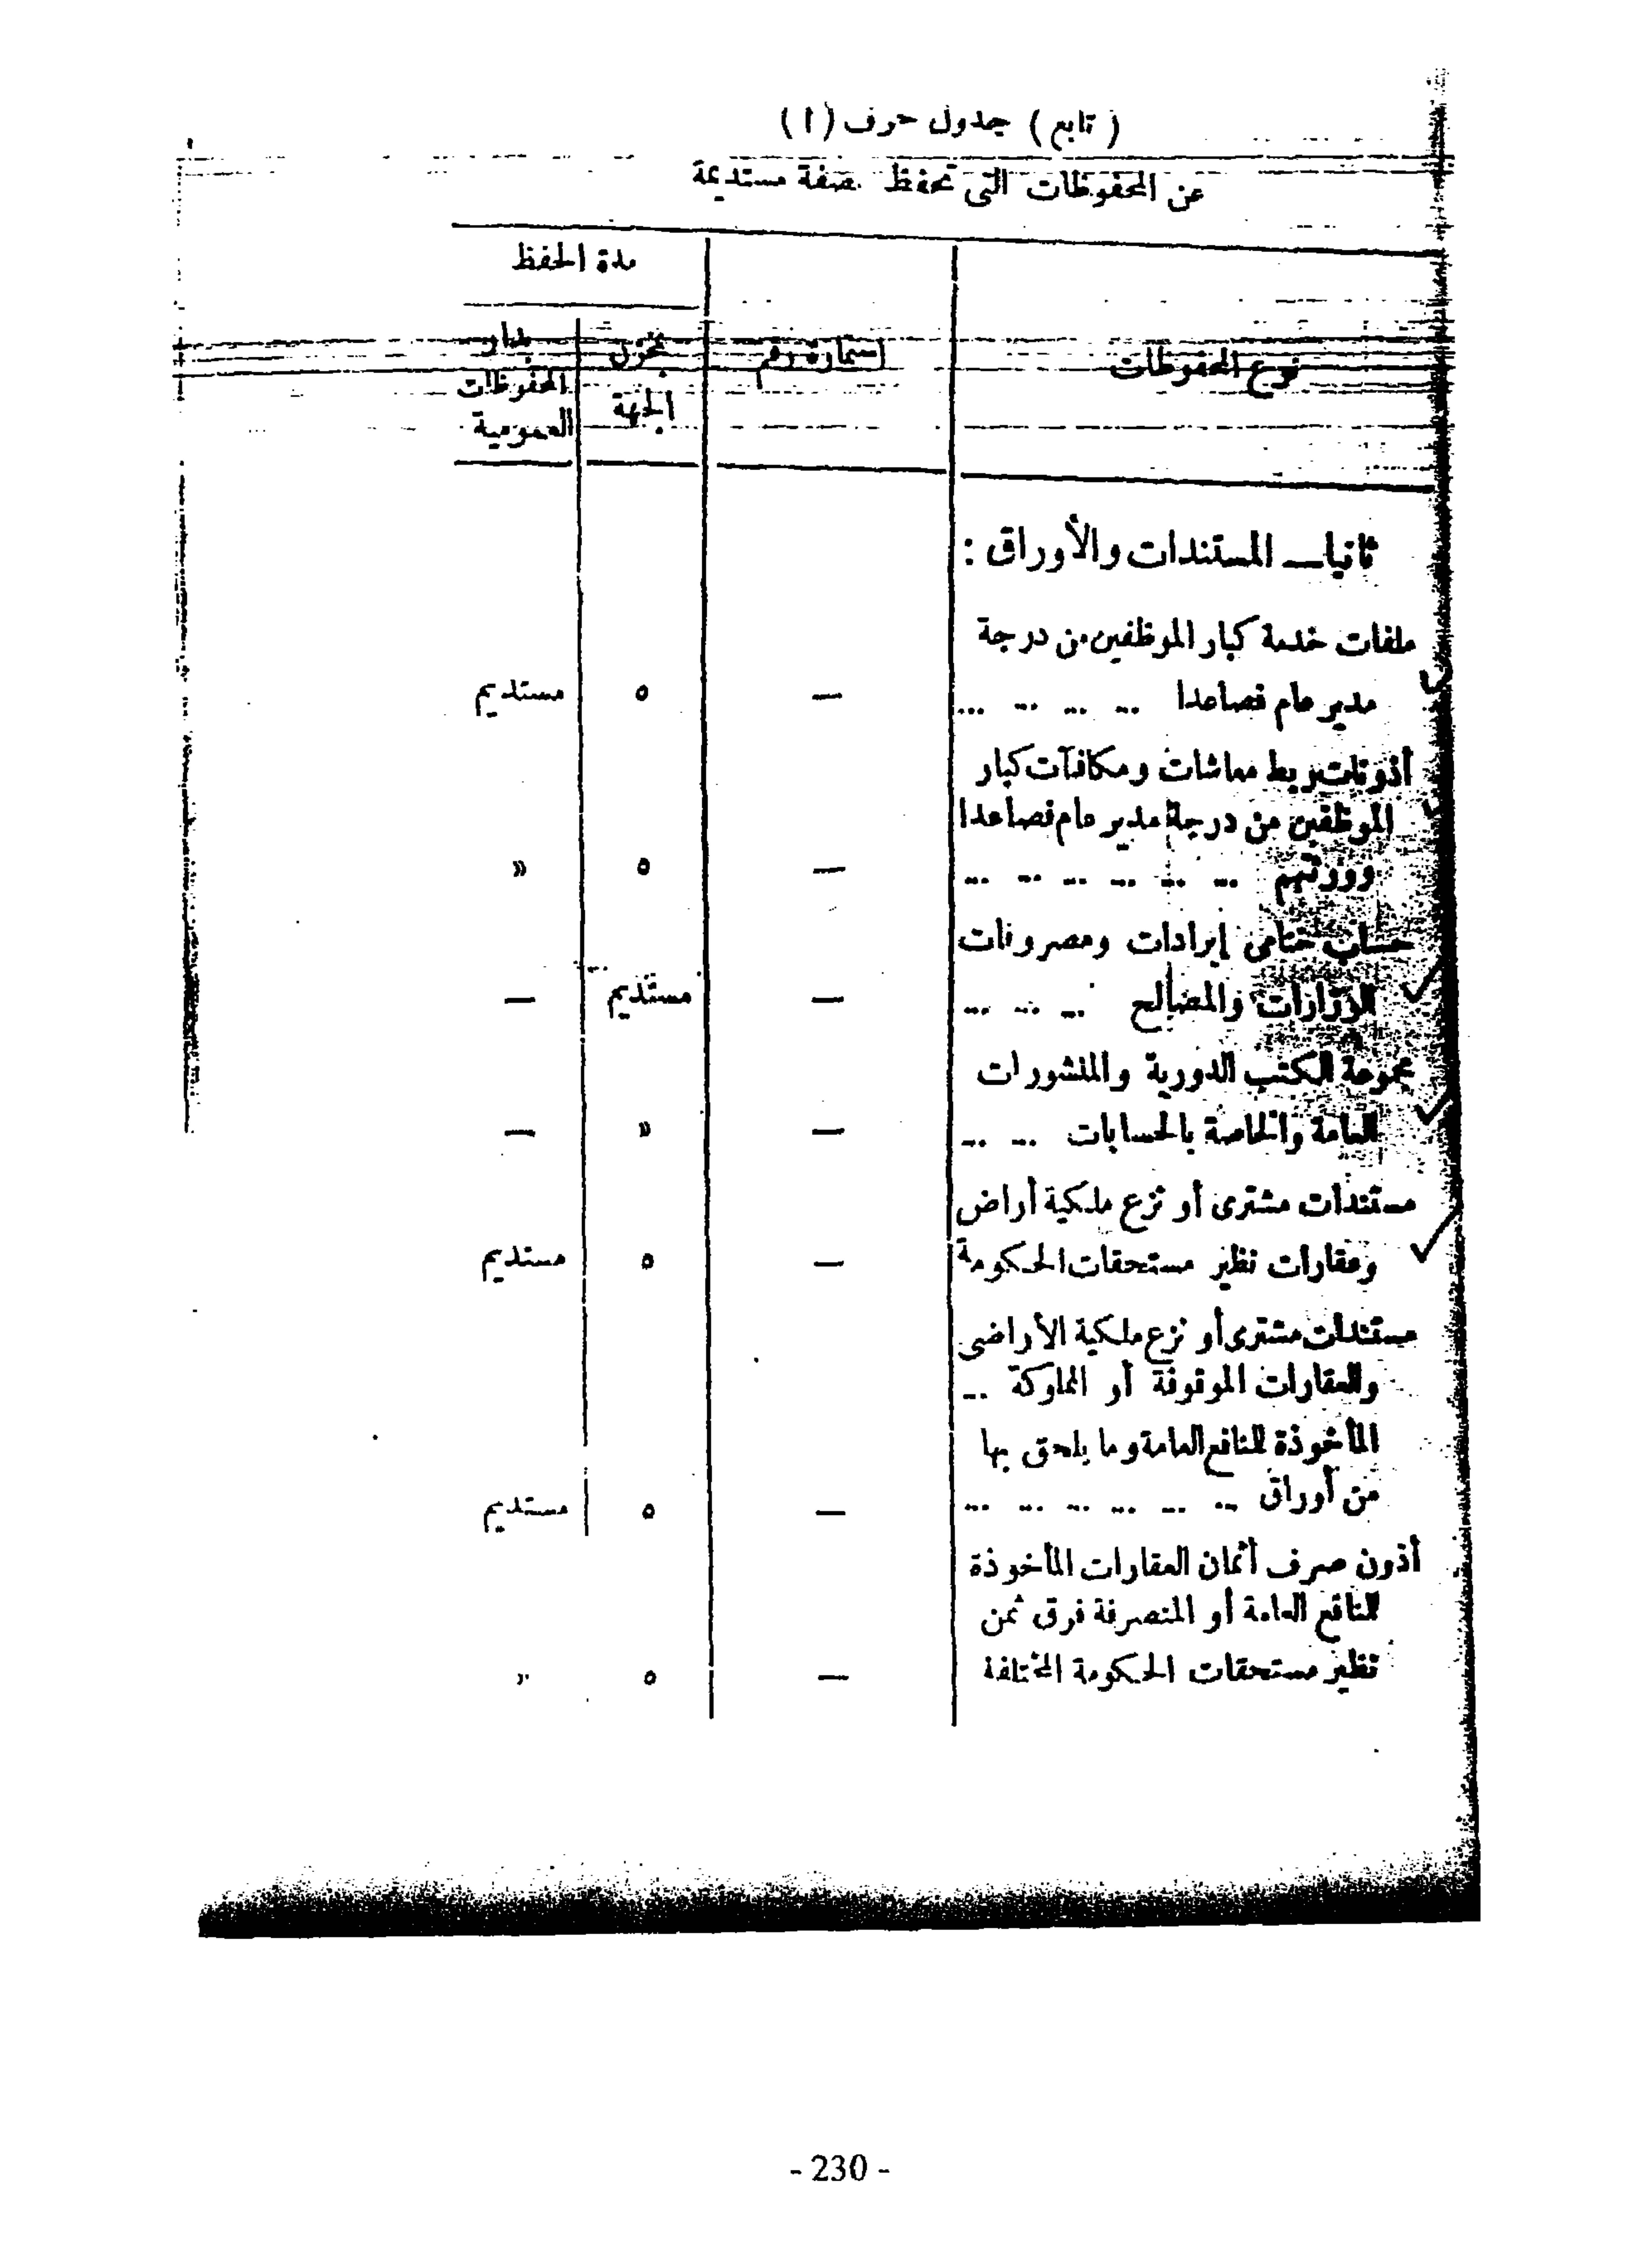 ( تابع ) جدول حرف ( ا )
عن المحفوظات التى تحفظ بصفة مستديمة
مدة الحفظ
نوع المحفوظات
استمارة رقم
بمخزن
الجهة
بدار
المحفوظات
العمومية
ثانيا — المستندات والأوراق :
ملفات خدمة كبار الموظفين من درجة
مدير عام فصاعدا ... ... ... ... — ٥ مستديم
أذونات ربط معاشات ومكافآت كبار
الموظفين من درجة مدير عام فصاعدا
وورثتهم ... ... ... ... ... ... — ٥ »
حساب ختامى إيرادات ومصروفات
الوزارات والمصالح ... ... ... — مستديم —
مجموعة الكتب الدورية والمنشورات
العامة والخاصة بالحسابات ... ... — » —
مستندات مشترى أو نزع ملكية أراض
وعقارات نظير مستحقات الحكومة — ٥ مستديم
مستندات مشترى أو نزع ملكية الأراضى
والعقارات الموقوفة أو المملوكة ...
المأخوذة للمنافع العامة وما يلحق بها
من أوراق ... ... ... ... ... ... — ٥ مستديم
أذون صرف أثمان العقارات المأخوذة
للمنافع العامة أو المنصرفة فرق ثمن
نظير مستحقات الحكومة المختلفة — ٥ »
- 230 -